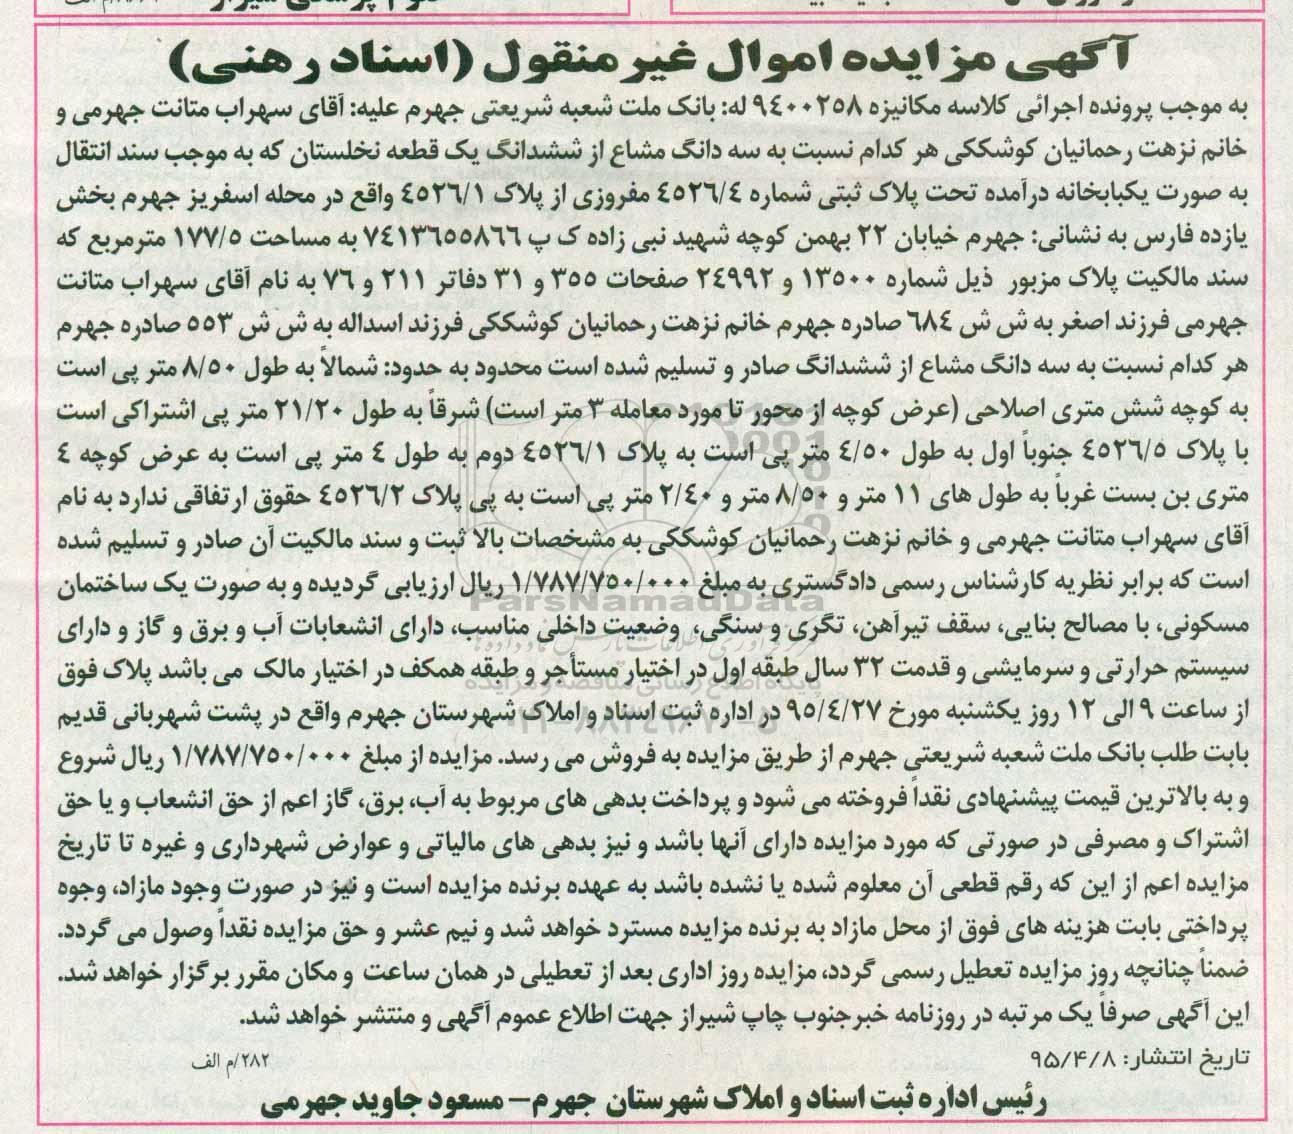 آگهی مزایده اموال غیر منقول (اسناد رهنی)
به موجب پرونده اجرائی کلاسه مکانیزه ۹٤۰۰۲۵۸ له: بانک ملت شعبه شریعتی جهرم علیه: آقای سهراب متانت جهرمی و
خانم نزهت رحمانیان کوشککی هر کدام نسبت به سه دانگ مشاع از ششدانگ یک قطعه نخلستان که به موجب سند انتقال
به صورت یکبابخانه درآمده تحت پلاک ثبتی شماره ٤٥٢٦/٤ مفروزی از پلاک ٤٥٢٦/١ واقع در محله اسفریز جهرم بخش
یازده فارس به نشانی: جهرم خیابان ۲۲ بهمن کوچه شهید نبی زاده ک پ ٧٤١٣٦٥٥٨٦٦ به مساحت ١٧٧/٥ مترمربع که
سند مالکیت پلاک مزبور ذیل شماره ١٣٥٠٠ و ٢٤٩٩٢ صفحات ٣٥٥ و ٣١ دفاتر ٢١١ و ٧٦ به نام آقای سهراب متانت
جهرمی فرزند اصغر به ش ش ٦٨٤ صادره جهرم خانم نزهت رحمانیان کوشککی فرزند اسداله به ش ش ٥٥٣ صادره جهرم
هر کدام نسبت به سه دانگ مشاع از ششدانگ صادر و تسلیم شده است محدود به حدود: شمالاً به طول ٨/٥٠ متر پی است
به کوچه شش متری اصلاحی (عرض کوچه از محور تا مورد معامله ٣ متر است) شرقاً به طول ٢١/٢٠ متر پی اشتراکی است
با پلاک ٤٥٢٦/٥ جنوباً اول به طول ٤/٥٠ متر پی است به پلاک ٤٥٢٦/١ دوم به طول ٤ متر پی است به عرض کوچه ٤
متری بن بست غرباً به طول های ١١ متر و ٨/٥٠ متر و ٢/٤٠ متر پی است به پی پلاک ٤٥٢٦/٢ حقوق ارتفاقی ندارد به نام
آقای سهراب متانت جهرمی و خانم نزهت رحمانیان کوشککی به مشخصات بالا ثبت و سند مالکیت آن صادر و تسلیم شده
است که برابر نظریه کارشناس رسمی دادگستری به مبلغ ١/٧٨٧/٧٥٠/٠٠٠ ریال ارزیابی گردیده و به صورت یک ساختمان
مسکونی، با مصالح بنایی، سقف تیرآهن، تگری و سنگی، وضعیت داخلی مناسب، دارای انشعابات آب و برق و گاز و دارای
سیستم حرارتی و سرمایشی و قدمت ٣٢ سال طبقه اول در اختیار مستأجر و طبقه همکف در اختیار مالک می باشد پلاک فوق
از ساعت ٩ الی ١٢ روز یکشنبه مورخ ٩٥/٤/٢٧ در اداره ثبت اسناد و املاک شهرستان جهرم واقع در پشت شهربانی قدیم
بابت طلب بانک ملت شعبه شریعتی جهرم از طریق مزایده به فروش می رسد. مزایده از مبلغ ١/٧٨٧/٧٥٠/٠٠٠ ریال شروع
و به بالاترین قیمت پیشنهادی نقداً فروخته می شود و پرداخت بدهی های مربوط به آب، برق، گاز اعم از حق انشعاب و یا حق
اشتراک و مصرفی در صورتی که مورد مزایده دارای آنها باشد و نیز بدهی های مالیاتی و عوارض شهرداری و غیره تا تاریخ
مزایده اعم از این که رقم قطعی آن معلوم شده یا نشده باشد به عهده برنده مزایده است و نیز در صورت وجود مازاد، وجوه
پرداختی بابت هزینه های فوق از محل مازاد به برنده مزایده مسترد خواهد شد و نیم عشر و حق مزایده نقداً وصول می گردد.
ضمناً چنانچه روز مزایده تعطیل رسمی گردد، مزایده روز اداری بعد از تعطیلی در همان ساعت و مکان مقرر برگزار خواهد شد.
این آگهی صرفاً یک مرتبه در روزنامه خبرجنوب چاپ شیراز جهت اطلاع عموم آگهی و منتشر خواهد شد.
تاریخ انتشار: ۹۵/۴/۸
۲۸۲/م الف
رئیس اداره ثبت اسناد و املاک شهرستان جهرم – مسعود جاوید جهرمی
ParsNamadData
پایگاه اطلاع رسانی مناقصه و مزایده